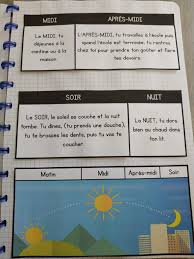 MIDI
APRÈS-MIDI
Le MIDI, tu
déjeunes à la
cantine ou à la
maison.
L'APRÈS-MIDI, tu travailles à l'école puis
quand l'école est terminée, tu rentres
chez toi pour prendre ton goûter et faire
tes devoirs.
SOIR
NUIT
Le SOIR, le soleil se couche et la nuit
tombe. Tu dines, (tu prends une douche),
tu te brosses les dents, puis tu vas te
coucher.
La NUIT, tu dors
bien au chaud dans
ton lit.
Matin
Midi
Après-midi
Soir